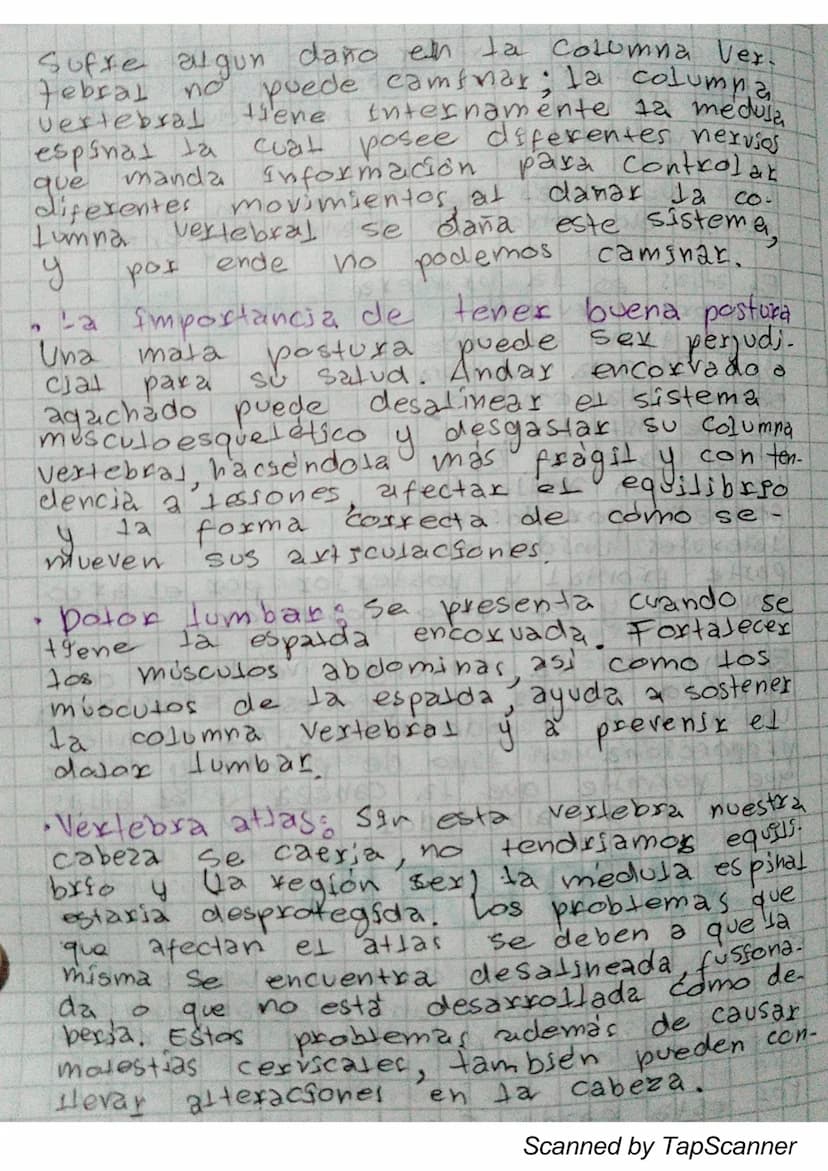 Sufre algun daño en la columna ver-
tebral no puede caminar; la columna
vertebral tiene internamente la medula
espinal la cual posee diferentes nervios
que manda información para controlar
diferentes movimientos, al danar la co-
lumna vertebral se daña este sistema,
y por ende no podemos caminar.
• La importancia de tener buena postura
Una mala postura puede ser perjudi-
cial para su salud. Andar encorvado o
agachado puede desalinear el sistema
musculoesquelético y desgastar su columna
vertebral, haciéndola más frágil y con ten-
dencia a lesiones, afectar el equilibrio
y la forma correcta de cómo se -
mueven sus articulaciones.
• Dolor lumbar: Se presenta cuando se
tiene la espalda encorvada. Fortalecer
los músculos abdominas, así como los
músculos de la espalda, ayuda a sostener
la columna vertebral y a prevenir el
dalor lumbar.
• Vertebra atlas: Sin esta vertebra nuestra
cabeza se caeria, no tendriamos equili-
brio y (la región ser) la médula espinal
estaria desprotegida. Los problemas que
que afectan el atlas se deben a que la
misma se encuentra desalineada, fusiona-
da, o que no está desarrollada como de-
beria. Estos problemas además de causar
molestias cervicales, también pueden con-
llevar alteraciones en la cabeza.
Scanned by TapScanner